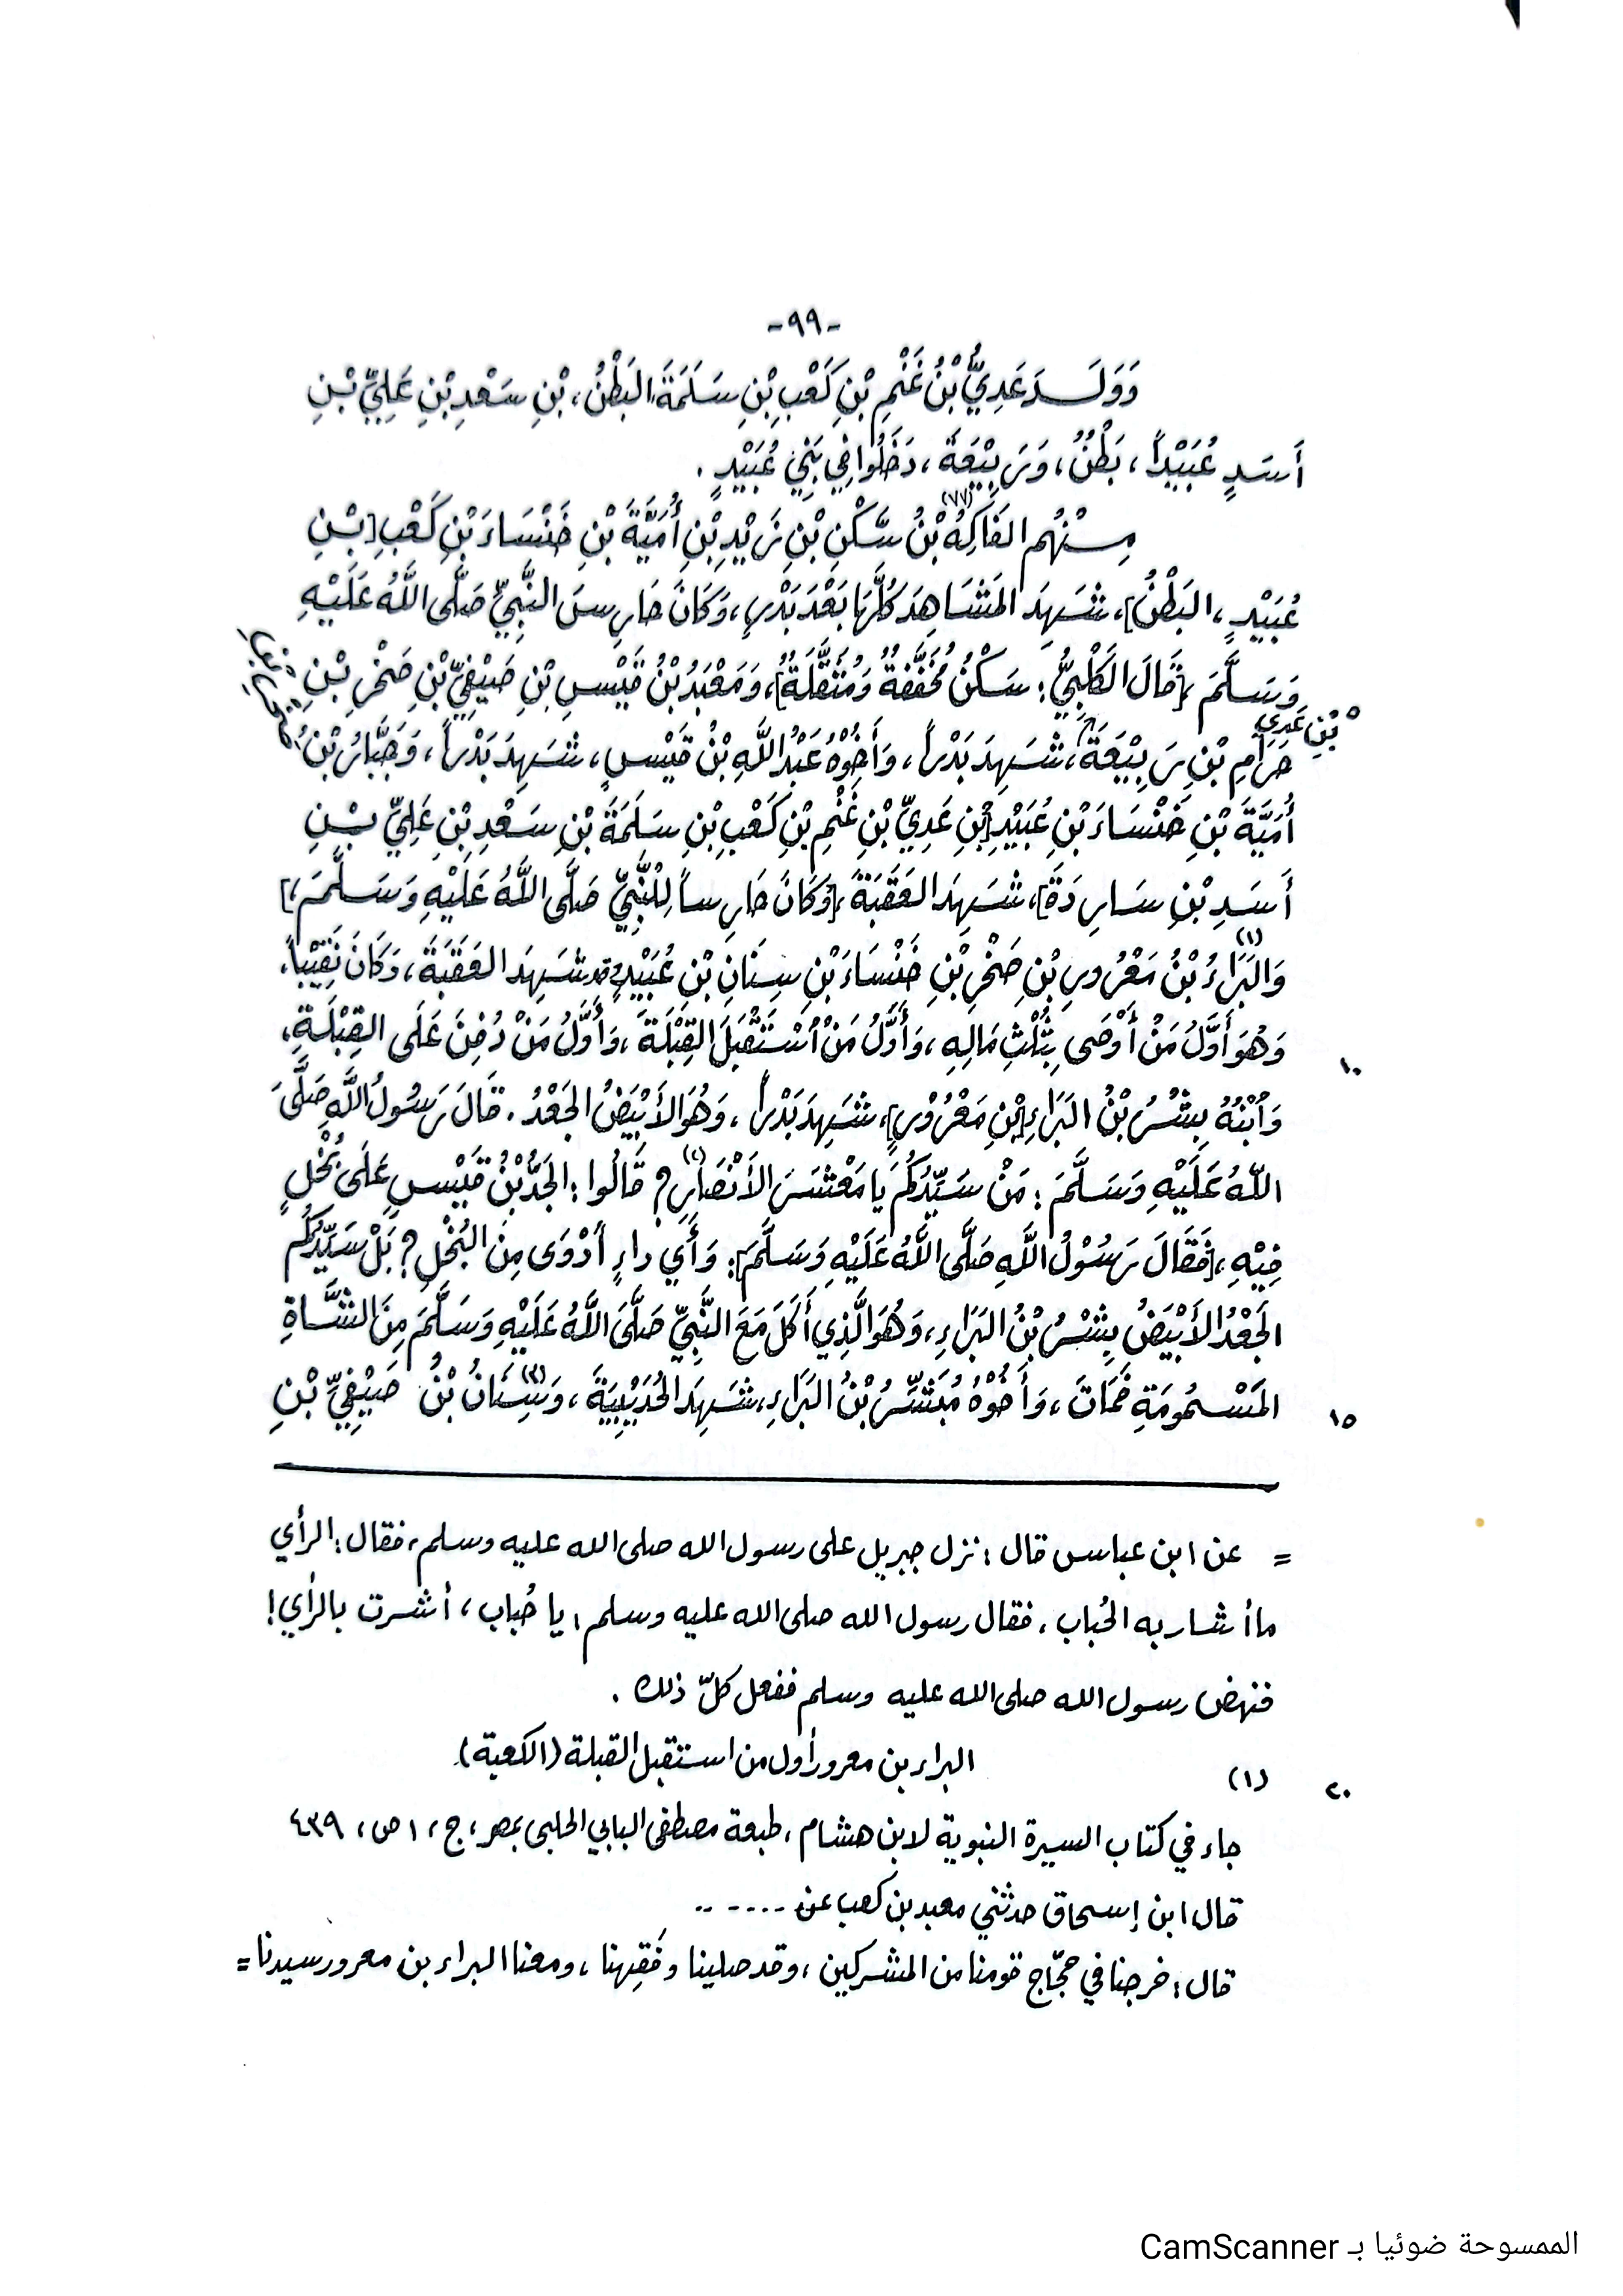 -٩٩-
وَوَلَـــدَ عَدِيُّ بْنُ غَنْمِ بْنِ كَعْبِ بْنِ سَلَمَةَ، البَطْنُ، بْنِ سَعْدِ بْنِ عَلِيِّ بْـنِ
أَسَدٍ عُبَيْداً، بَطْنٌ، وَرَبِيْعَةَ، دَخَلُوا فِي بَنِي عُبَيْدٍ.
مِـنْهُم الفَاكِهُ (٧٧) بْنُ سَكْنِ بْنِ زَيْدِ بْنِ أُمَيَّةَ بْنِ خَنْسَاءَ بْنِ كَعْبِ [بْـنِ
عُبَيْدٍ، البَطْنُ]، شَهِدَ المَشَاهِدَ كُلَّهَا بَعْدَ بَدْرٍ، وَكَانَ حَارِسَ النَّبِيِّ صَلَّى اللَّهُ عَلَيْهِ
وَسَلَّمَ، [قَالَ الكَلْبِيُّ: سَكْنٌ مُخَفَّفَةٌ وَمُثَقَّلَةٌ]، وَمَعْبَدُ بْنُ قَيْسِ بْنِ صَيْفِيِّ بْنِ صَخْرِ بْـنِ
حَرَامِ بْنِ رَبِيْعَةَ، شَهِدَ بَدْراً، وَأَخُوْهُ عَبْدُ اللَّهِ بْنُ قَيْسٍ، شَهِدَ بَدْراً، وَجَبَّارُ بْنُ
بْنِ عَدِيِّ
أُمَيَّةَ بْنِ خَنْسَاءَ بْنِ عُبَيْدِ [بْنِ عَدِيِّ بْنِ غَنْمِ بْنِ كَعْبِ بْنِ سَلَمَةَ بْنِ سَعْدِ بْنِ عَلِيِّ بْـنِ
أَسَدِ بْنِ سَارِدَةَ]، شَهِدَ العَقَبَةَ، [وَكَانَ حَارِساً لِلنَّبِيِّ صَلَّى اللَّهُ عَلَيْهِ وَسَلَّمَ،]
وَالبَرَاءُ (١) بْنُ مَعْرُورِ بْنِ صَخْرِ بْنِ خَنْسَاءَ بْنِ سِنَانِ بْنِ عُبَيْدٍ، قد شَهِدَ العَقَبَةَ، وَكَانَ نَقِيْباً،
وَهُوَ أَوَّلُ مَنْ أَوْصَى بِثُلُثِ مَالِهِ، وَأَوَّلُ مَنْ اُسْتَقْبَلَ القِبْلَةَ، وَأَوَّلُ مَنْ دُفِنَ عَلَى القِبْلَةِ،
١٠
وَاُبْنُهُ بِشْرُ بْنُ البَرَاءِ [بْنِ مَعْرُوْرٍ]، شَهِدَ بَدْراً، وَهُوَ الأَبْيَضُ الجَعْدُ. قَالَ رَسُولُ اللَّهِ صَلَّىَ
اللّهُ عَلَيْهِ وَسَلَّمَ: مَنْ سَيِّدُكُم يَا مَعْشَرَ الأَنْصَارِ (٢)؟ قَالُوا: الجَدُّ بْنُ قَيْسٍ عَلَى بُخْلٍ
فِيْهِ، [فَقَالَ رَسُوْلُ اللَّهِ صَلَّى اللَّهُ عَلَيْهِ وَسَلَّمَ]: وَأَي داءٍ أَدْوَى مِنَ البُخْلِ؟ بَلْ سَيِّدُكُم
الجَعْدُ الأَبْيَضُ بِشْرُ بْنُ البَرَاءِ، وَهُوَ الَّذِي أَكَلَ مَعَ النَّبِيِّ صَلَّىَ اللَّهُ عَلَيْهِ وَسَلَّمَ مِنَ الشَّاةِ
المَسْمُومَةِ فَمَاتَ، وَأَخُوْهُ مُبَشِّرُ بْنُ البَرَاءِ، شَهِدَ الحُدَيْبِيَةَ، وَسِنَانُ (٣) بْنُ صَيْفِيِّ بْنِ
١٥
= عن ابن عباس قال: نزل جبريل على رسول الله صلى الله عليه وسلم، فقال: الرأي
ما أشار به الحُباب، فقال رسول الله صلى الله عليه وسلم: يا حُباب، أشرت بالرأي!
فنهض رسول الله صلى الله عليه وسلم ففعل كلّ ذلك.
(١) البراء بن معرور أول من استقبل القبلة (الكعبة).
٢٠
جاء في كتاب السيرة النبوية لابن هشام، طبعة مصطفى البابي الحلبي بمصر، ج، ١ ص، ٤٣٩
قال ابن إسحاق حدثني معبد بن كعب عن ......
قال: خرجنا في حجّاج قومنا من المشركين، وقد صلينا وفَقِهنا، ومعنا البراء بن معرور سيدنا =
الممسوحة ضوئيا بـ CamScanner